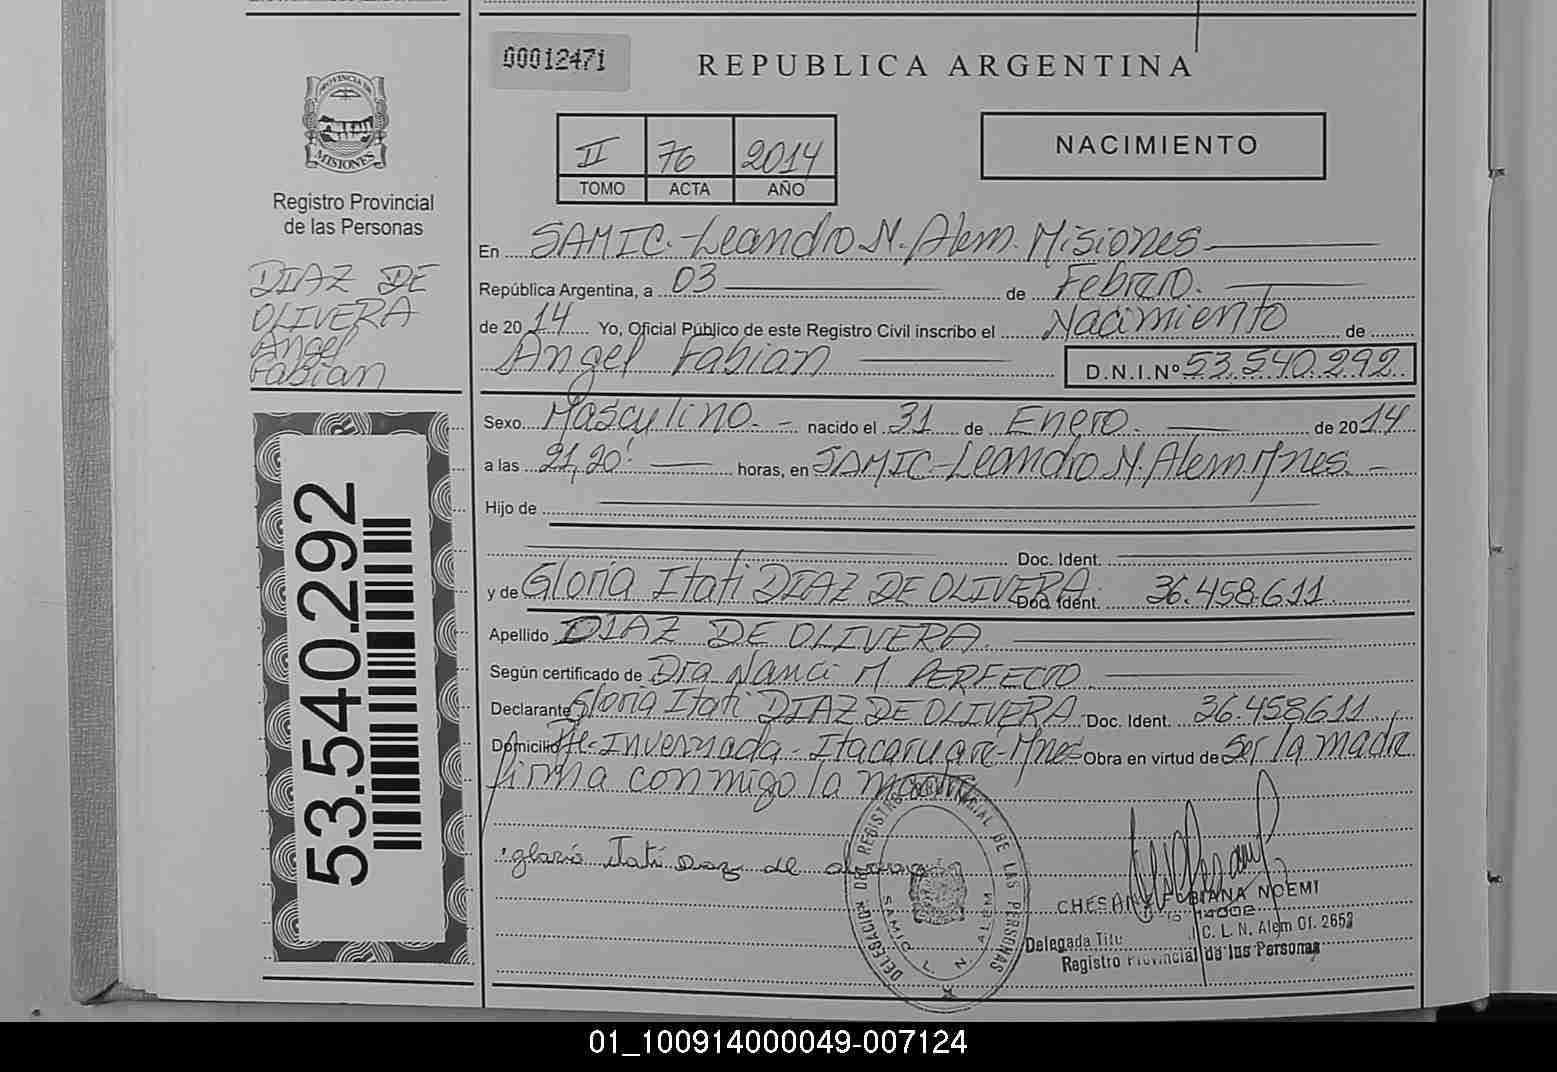 00012471
REPUBLICA ARGENTINA
PROVINCIA DE
MISIONES
Registro Provincial
de las Personas
DIAZ DE
OLIVERA
Angel
Fabian
53.540.292
II 76 2014
TOMO ACTA AÑO
NACIMIENTO
En SAMIC.-Leandro N. Alem. Misiones
República Argentina, a 03 de Febrero.
de 2014 Yo, Oficial Público de este Registro Civil inscribo el Nacimiento de
Angel Fabian D.N.I.Nº 53.540.292
Sexo Masculino.- nacido el 31 de Enero. de 2014
a las 21,20' horas, en SAMIC-Leandro N. Alem Mnes.-
Hijo de
Doc. Ident.
y de Gloria Itati DIAZ DE OLIVERA. Doc. Ident. 36.458.611
Apellido DIAZ DE OLIVERA.
Según certificado de Dra Nanci M. PERFECTO
Declarante Gloria Itati DIAZ DE OLIVERA. Doc. Ident. 36.458.611.
Domicilio Invernada - Itacaruare-Mnes Obra en virtud de Ser la madre
firma conmigo la madre
gloria Itatí Diaz de olivera
DELEGACION DEL REGISTRO PROVINCIAL DE LAS PERSONAS
SAMIC L. N. ALEM
CHESANY FABIANA NOEMI
Delegada C. L. N. Alem Of. 2653
Registro Provincial de las Personas
01_100914000049-007124